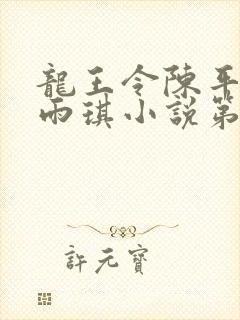 龍王令陳平
雨琪小說第
許元寶